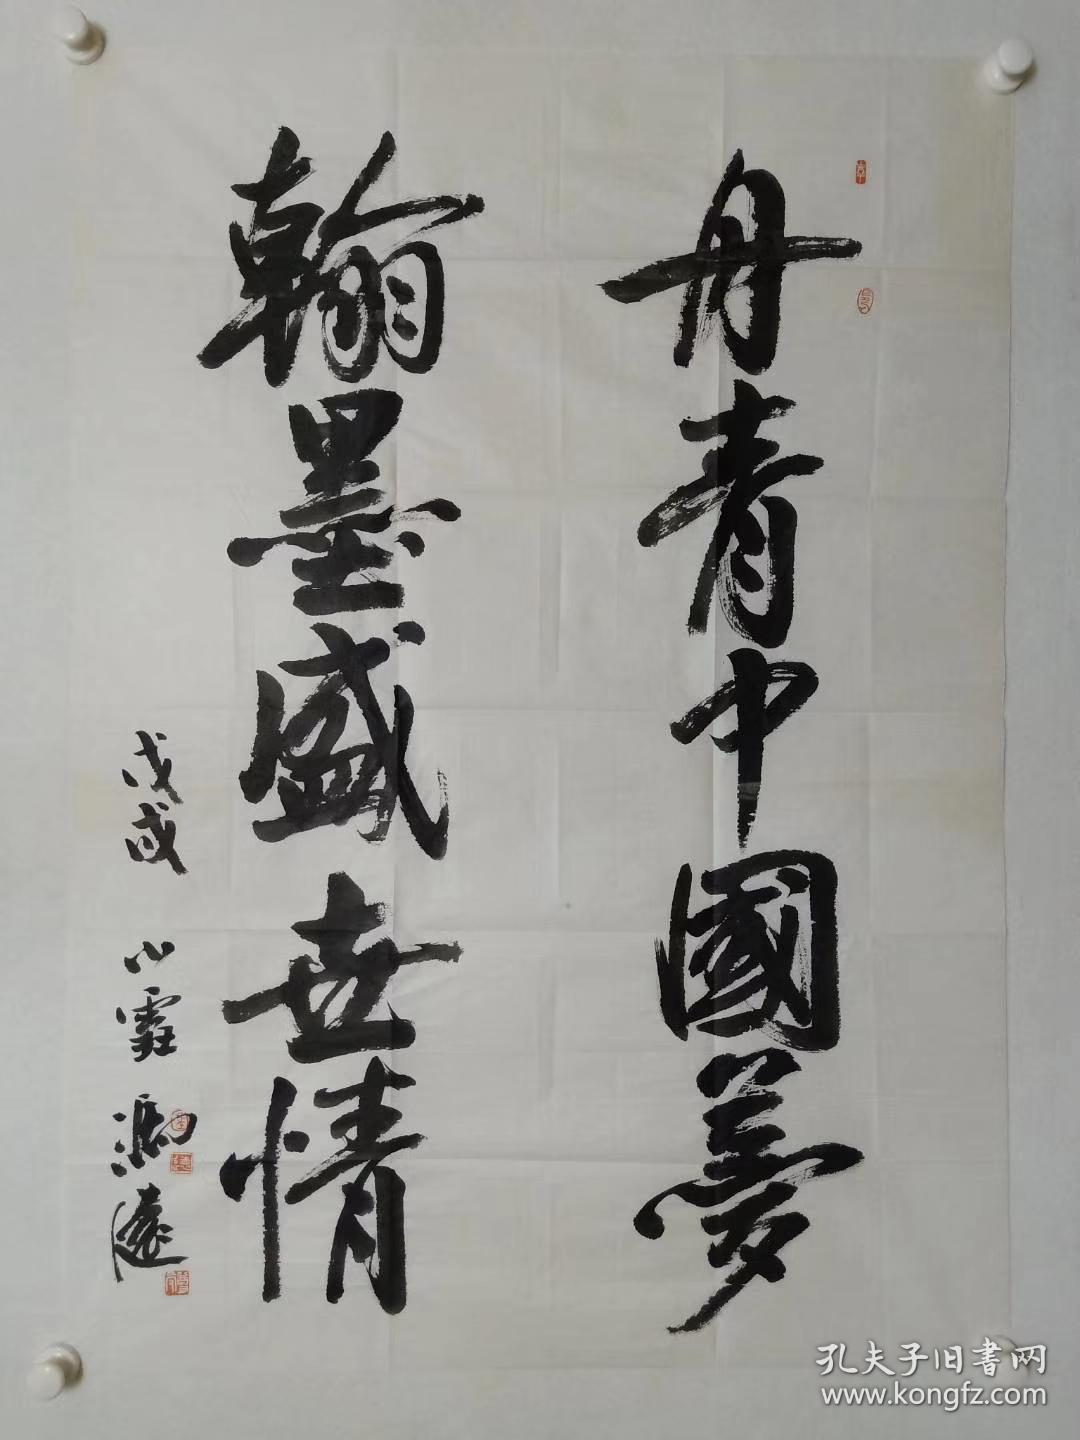 丹青中國夢
翰墨盛世情
戊戌 小霞 馮遠
孔夫子旧書网
www.kongfz.com